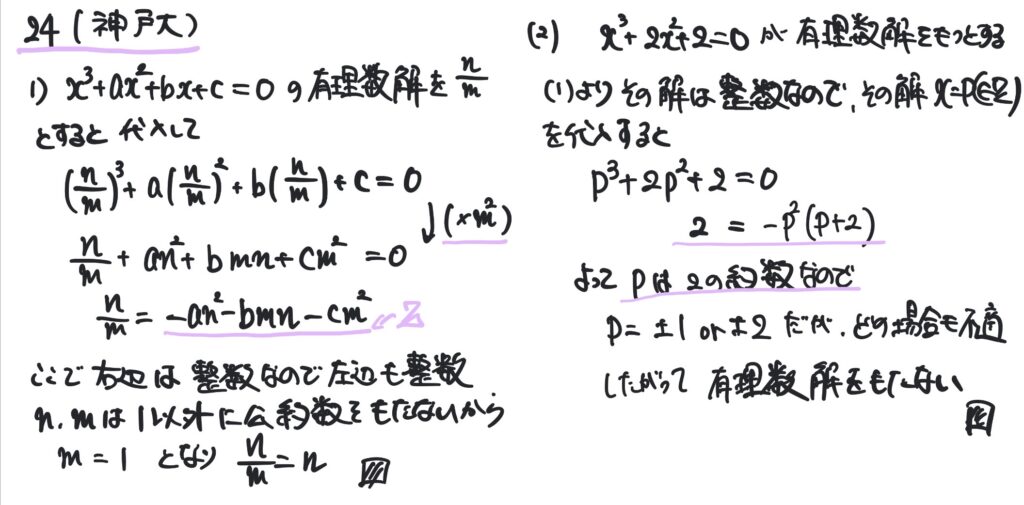 24 (神戸大)
1) x³+ax²+bx+c=0 の有理数解を n/m
とすると 代入して
(n/m)³+a(n/m)²+b(n/m)+c=0
↓(×m²)
n/m+an²+bmn+cm²=0
n/m=-an²-bmn-cm² ←ℤ
ここで 右辺は 整数なので 左辺も整数
n.mは1以外に公約数をもたないから
m=1 となり n/m=n
(2) x³+2x²+2=0 が 有理数解をもつとする
(1)より その解は 整数なので、その解 x=p(∈ℤ)
を代入すると
p³+2p²+2=0
2=-p²(p+2)
よって pは 2の約数なので
p=±1 or ±2 だが、どの場合も不適
したがって 有理数解をもたない